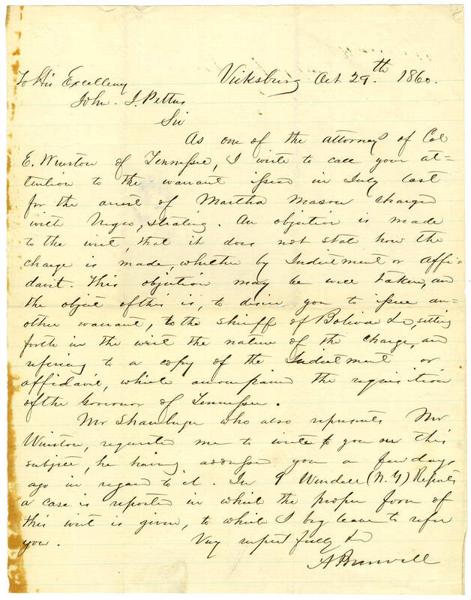 Vicksburg Oct 29th 1860.
To His Excellency
John. J. Pettus
Sir
As one of the attorneys of Col
E. Winston of Tennessee, I write to call your at-
tention to the warrant issued in July last
for the arrest of Martha Mason charged
with Negro, Stealing. An objection is made
to the writ, that it does not state how the
charge is made, whether by Indictment or Affi-
davit. This objection may be well taken, and
the object of this is, to desire you to issue an-
other warrant, to the sheriff of Bolivar Co, setting
forth in the writ the nature of the charge, and
refering to a copy of the Indictment or
affidavit, which accompanied the requisition
of the Governor of Tennessee.
Mr Shambuger who also represents Mr
Winston, requests me to write to you on this
subject, he having addressed you a few days
ago in regard to it. In 9 Wendell (N.Y) Reports,
a case is reported in which the proper form of
this writ is given, to which I beg leave to refer
you. Very respectfully &c
A Burwell